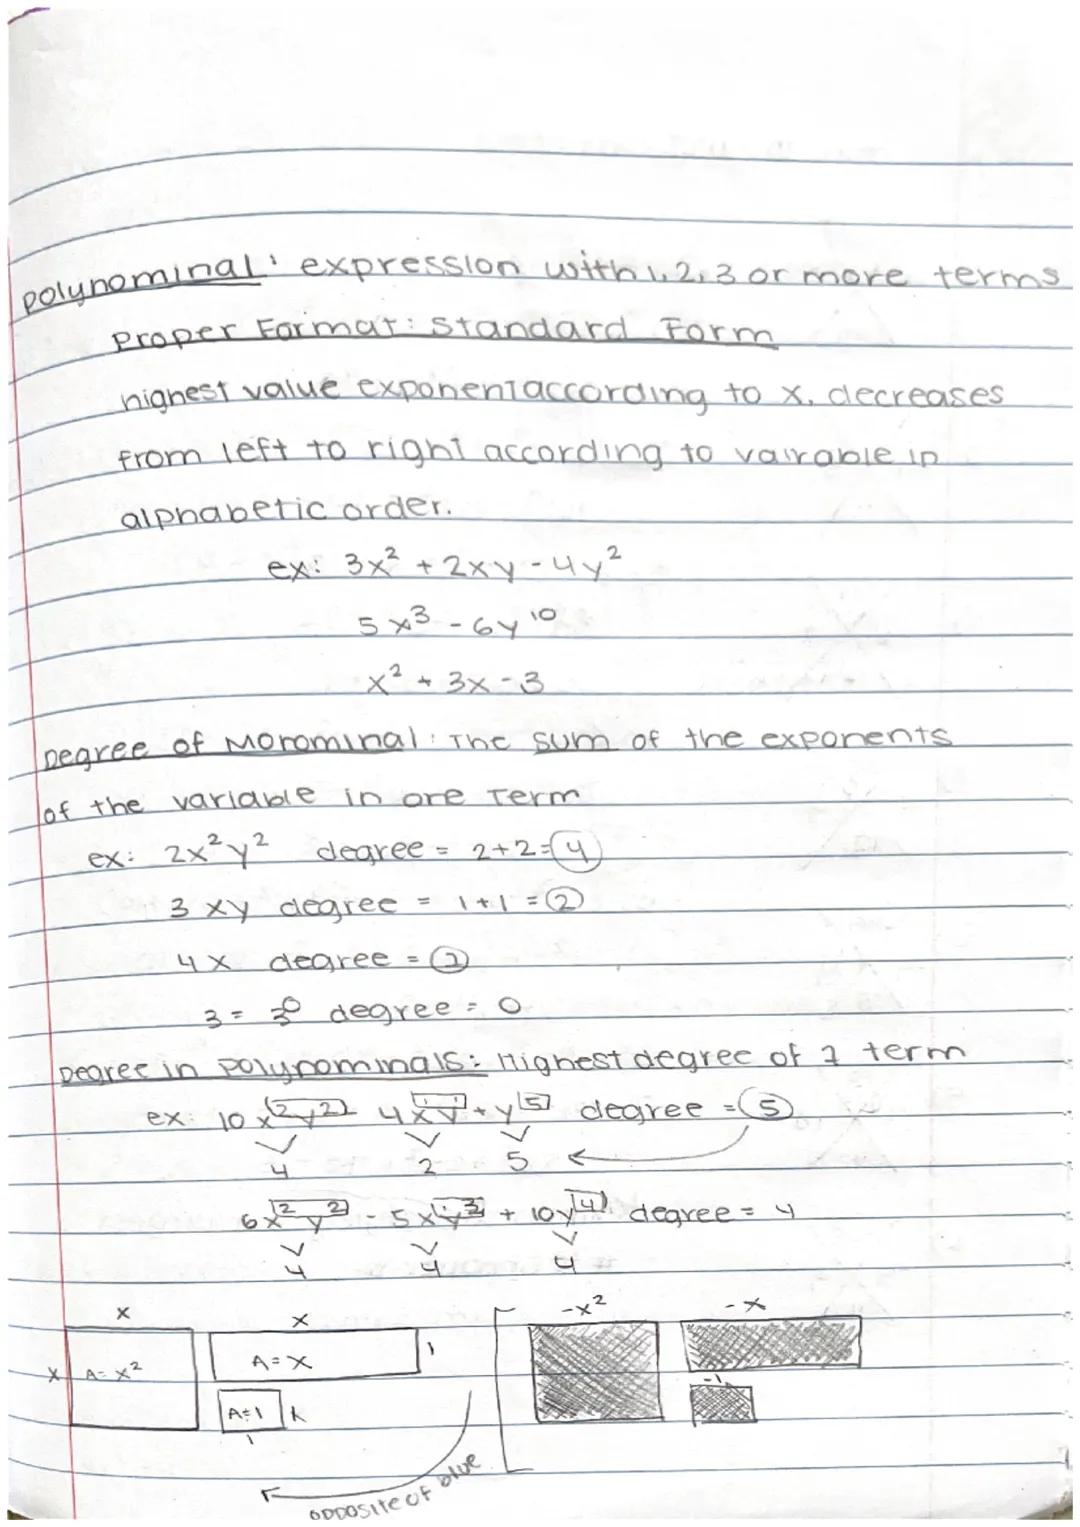 polynominal: expression with 1, 2, 3 or more terms
Proper Format: Standard Form
highest value exponent according to x, decreases
from left to right according to vairable in
alphabetic order.
ex: 3x² + 2xy - 4y²
5x³ - 6y¹⁰
x² + 3x - 3
Degree of Monominal: The sum of the exponents
of the variable in one term
ex: 2x²y² degree = 2+2=4
3xy degree = 1+1=2
4x degree = 1
3 = 3⁰ degree = 0
Degree in Polynominals: Highest degree of 1 term
ex: 10x²y² 4x¹y¹ + y⁵ degree = 5
4 2 5
6x²y² - 5x¹y³ + 10y⁴ degree = 4
4 4 4
x x -x² -x
x A=x² A=x 1
A=1 -1
1
opposite of blue